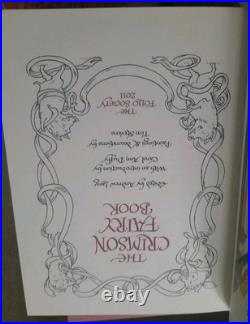 THE
CRIMSON
FAIRY
BOOK
Edited by Andrew Lang
With an introduction by
Carol Ann Duffy
Paintings & decorations by
Tim Stevens
THE
FOLIO SOCIETY
2011